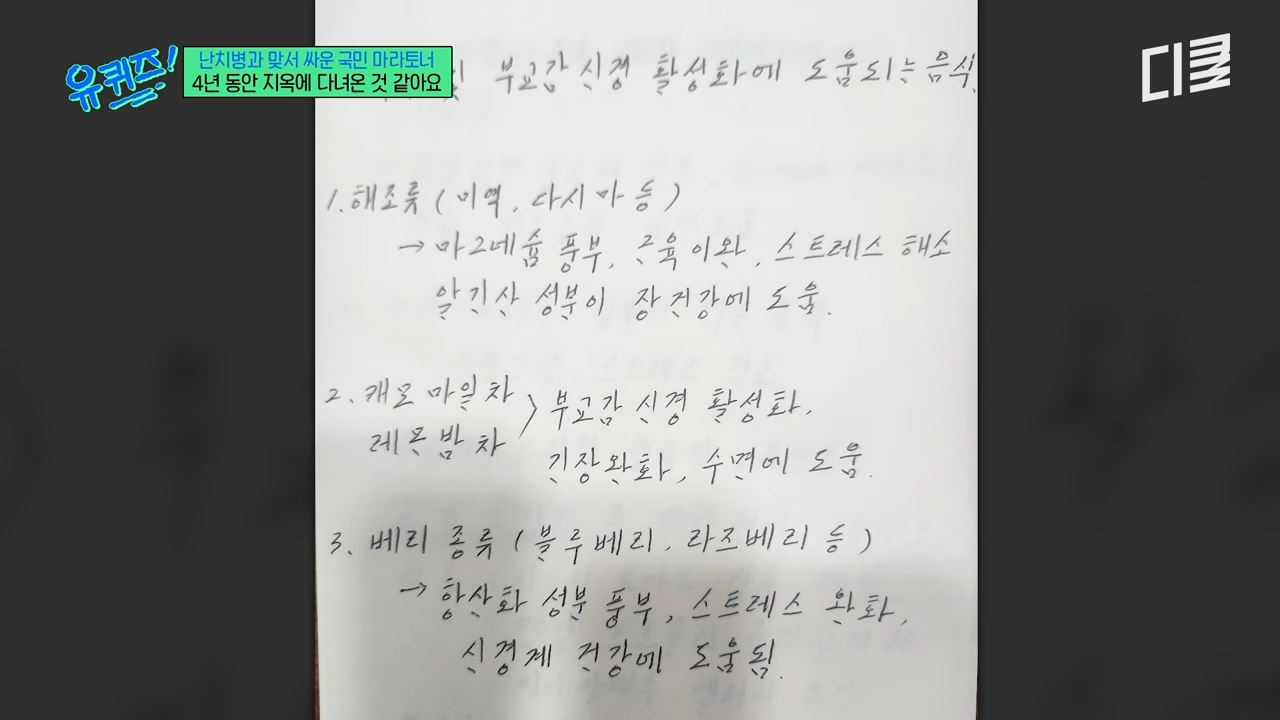 유퀴즈!
난치병과 맞서 싸운 국민 마라토너
4년 동안 지옥에 다녀온 것 같아요
디클
부교감 신경 활성화에 도움되는 음식.
1. 해조류 (미역, 다시마 등)
→ 마그네슘 풍부, 근육이완, 스트레스 해소
알긴산 성분이 장건강에 도움.
2. 캐모마일차
레몬밤차
> 부교감 신경 활성화,
긴장완화, 수면에 도움.
3. 베리 종류 (블루베리, 라즈베리 등)
→ 항산화 성분 풍부, 스트레스 완화,
신경계 건강에 도움됨.